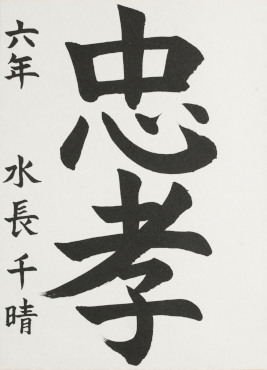 忠孝
六年 水長千晴